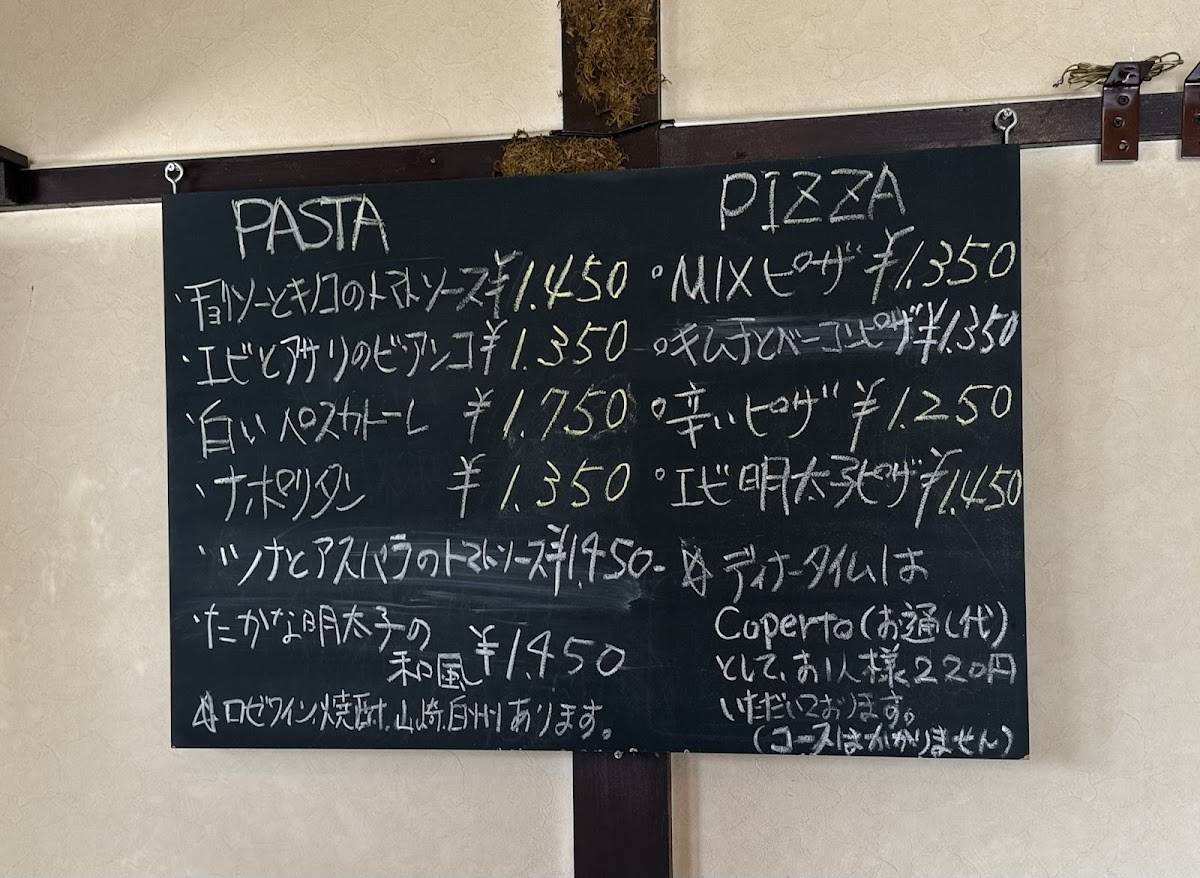 PASTA
・チョリソーとキノコのトマトソース ¥1.450
・エビとアサリのビアンコ ¥1.350
白いペスカトーレ ¥1.750
、ナポリタン ¥1.350
・ツナとアスパラのトマトソース ¥1,450-
・たかな明太子の
和風 ¥1.450
☆ロゼワイン、焼酎、山崎、白州あります。
PIZZA
○MIXピザ ¥1.350
○キムチとベーコンピザ ¥1.350
○辛いピザ ¥1.250
○エビ明太子ピザ ¥1.450
☆ディナータイムは
Coperto(お通し代)
として、お1人様220円
いただいております。
(コースはかかりません)